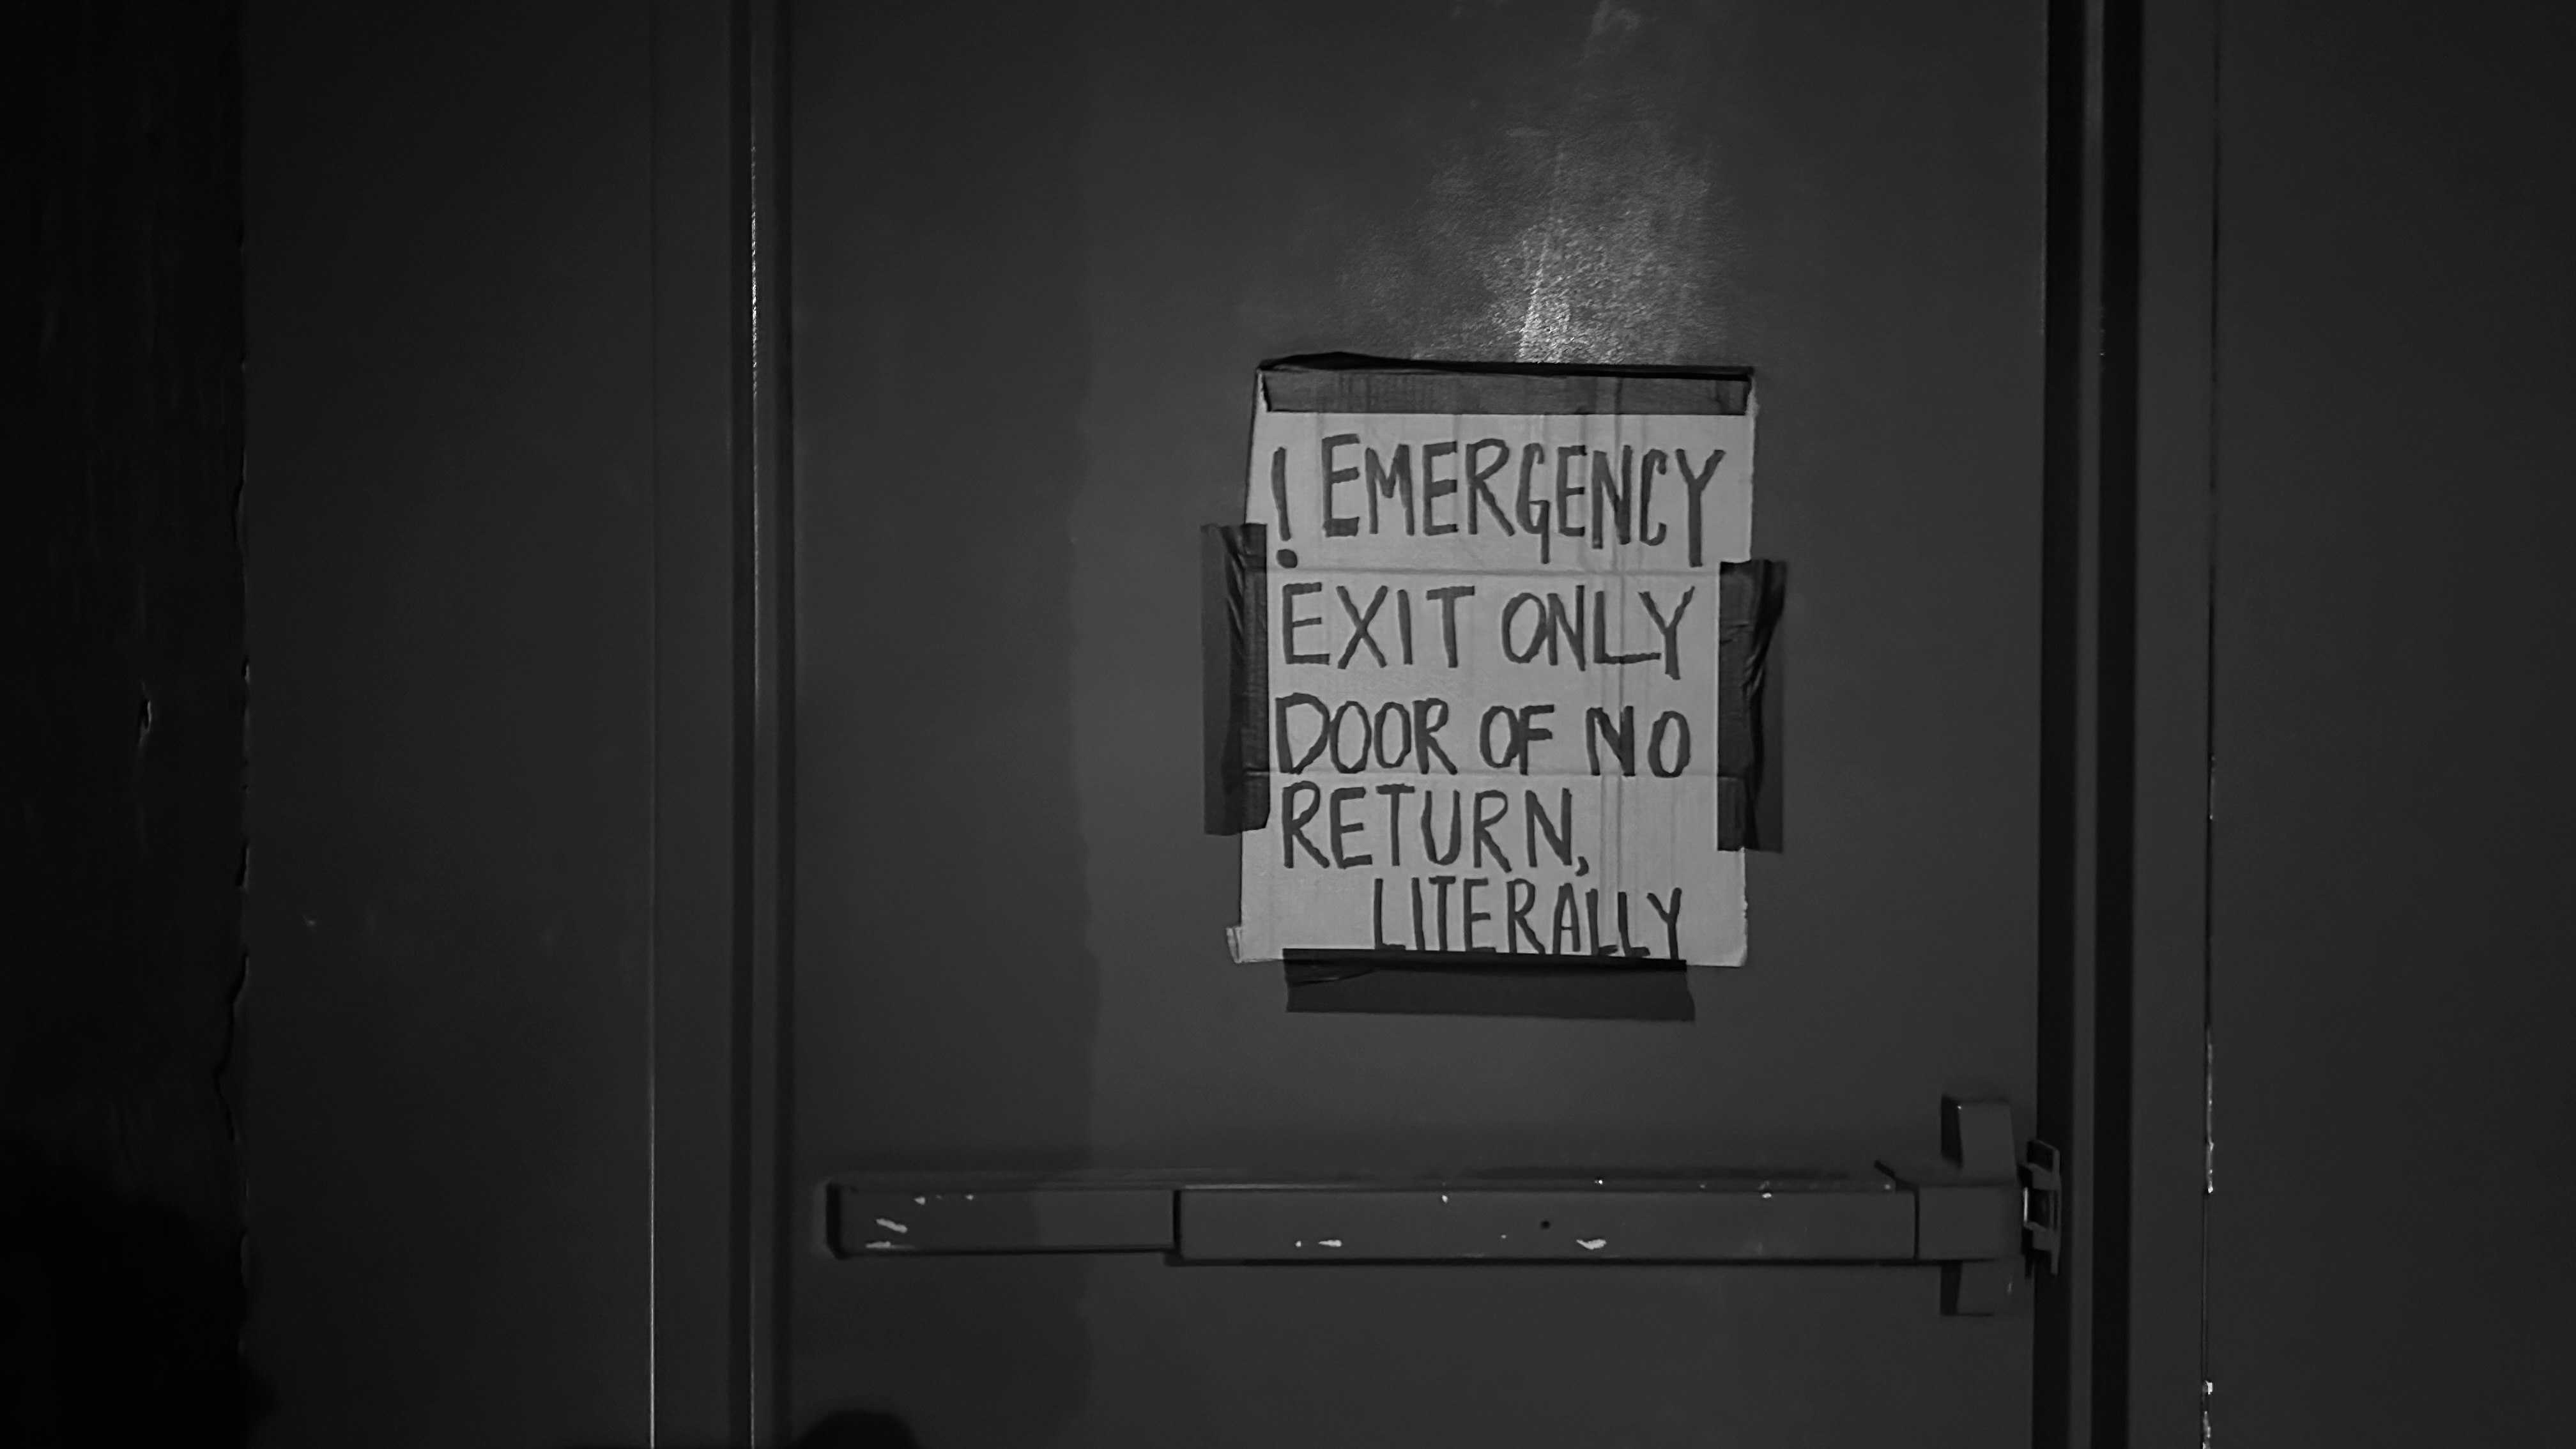 ! EMERGENCY
EXIT ONLY
DOOR OF NO
RETURN,
LITERALLY